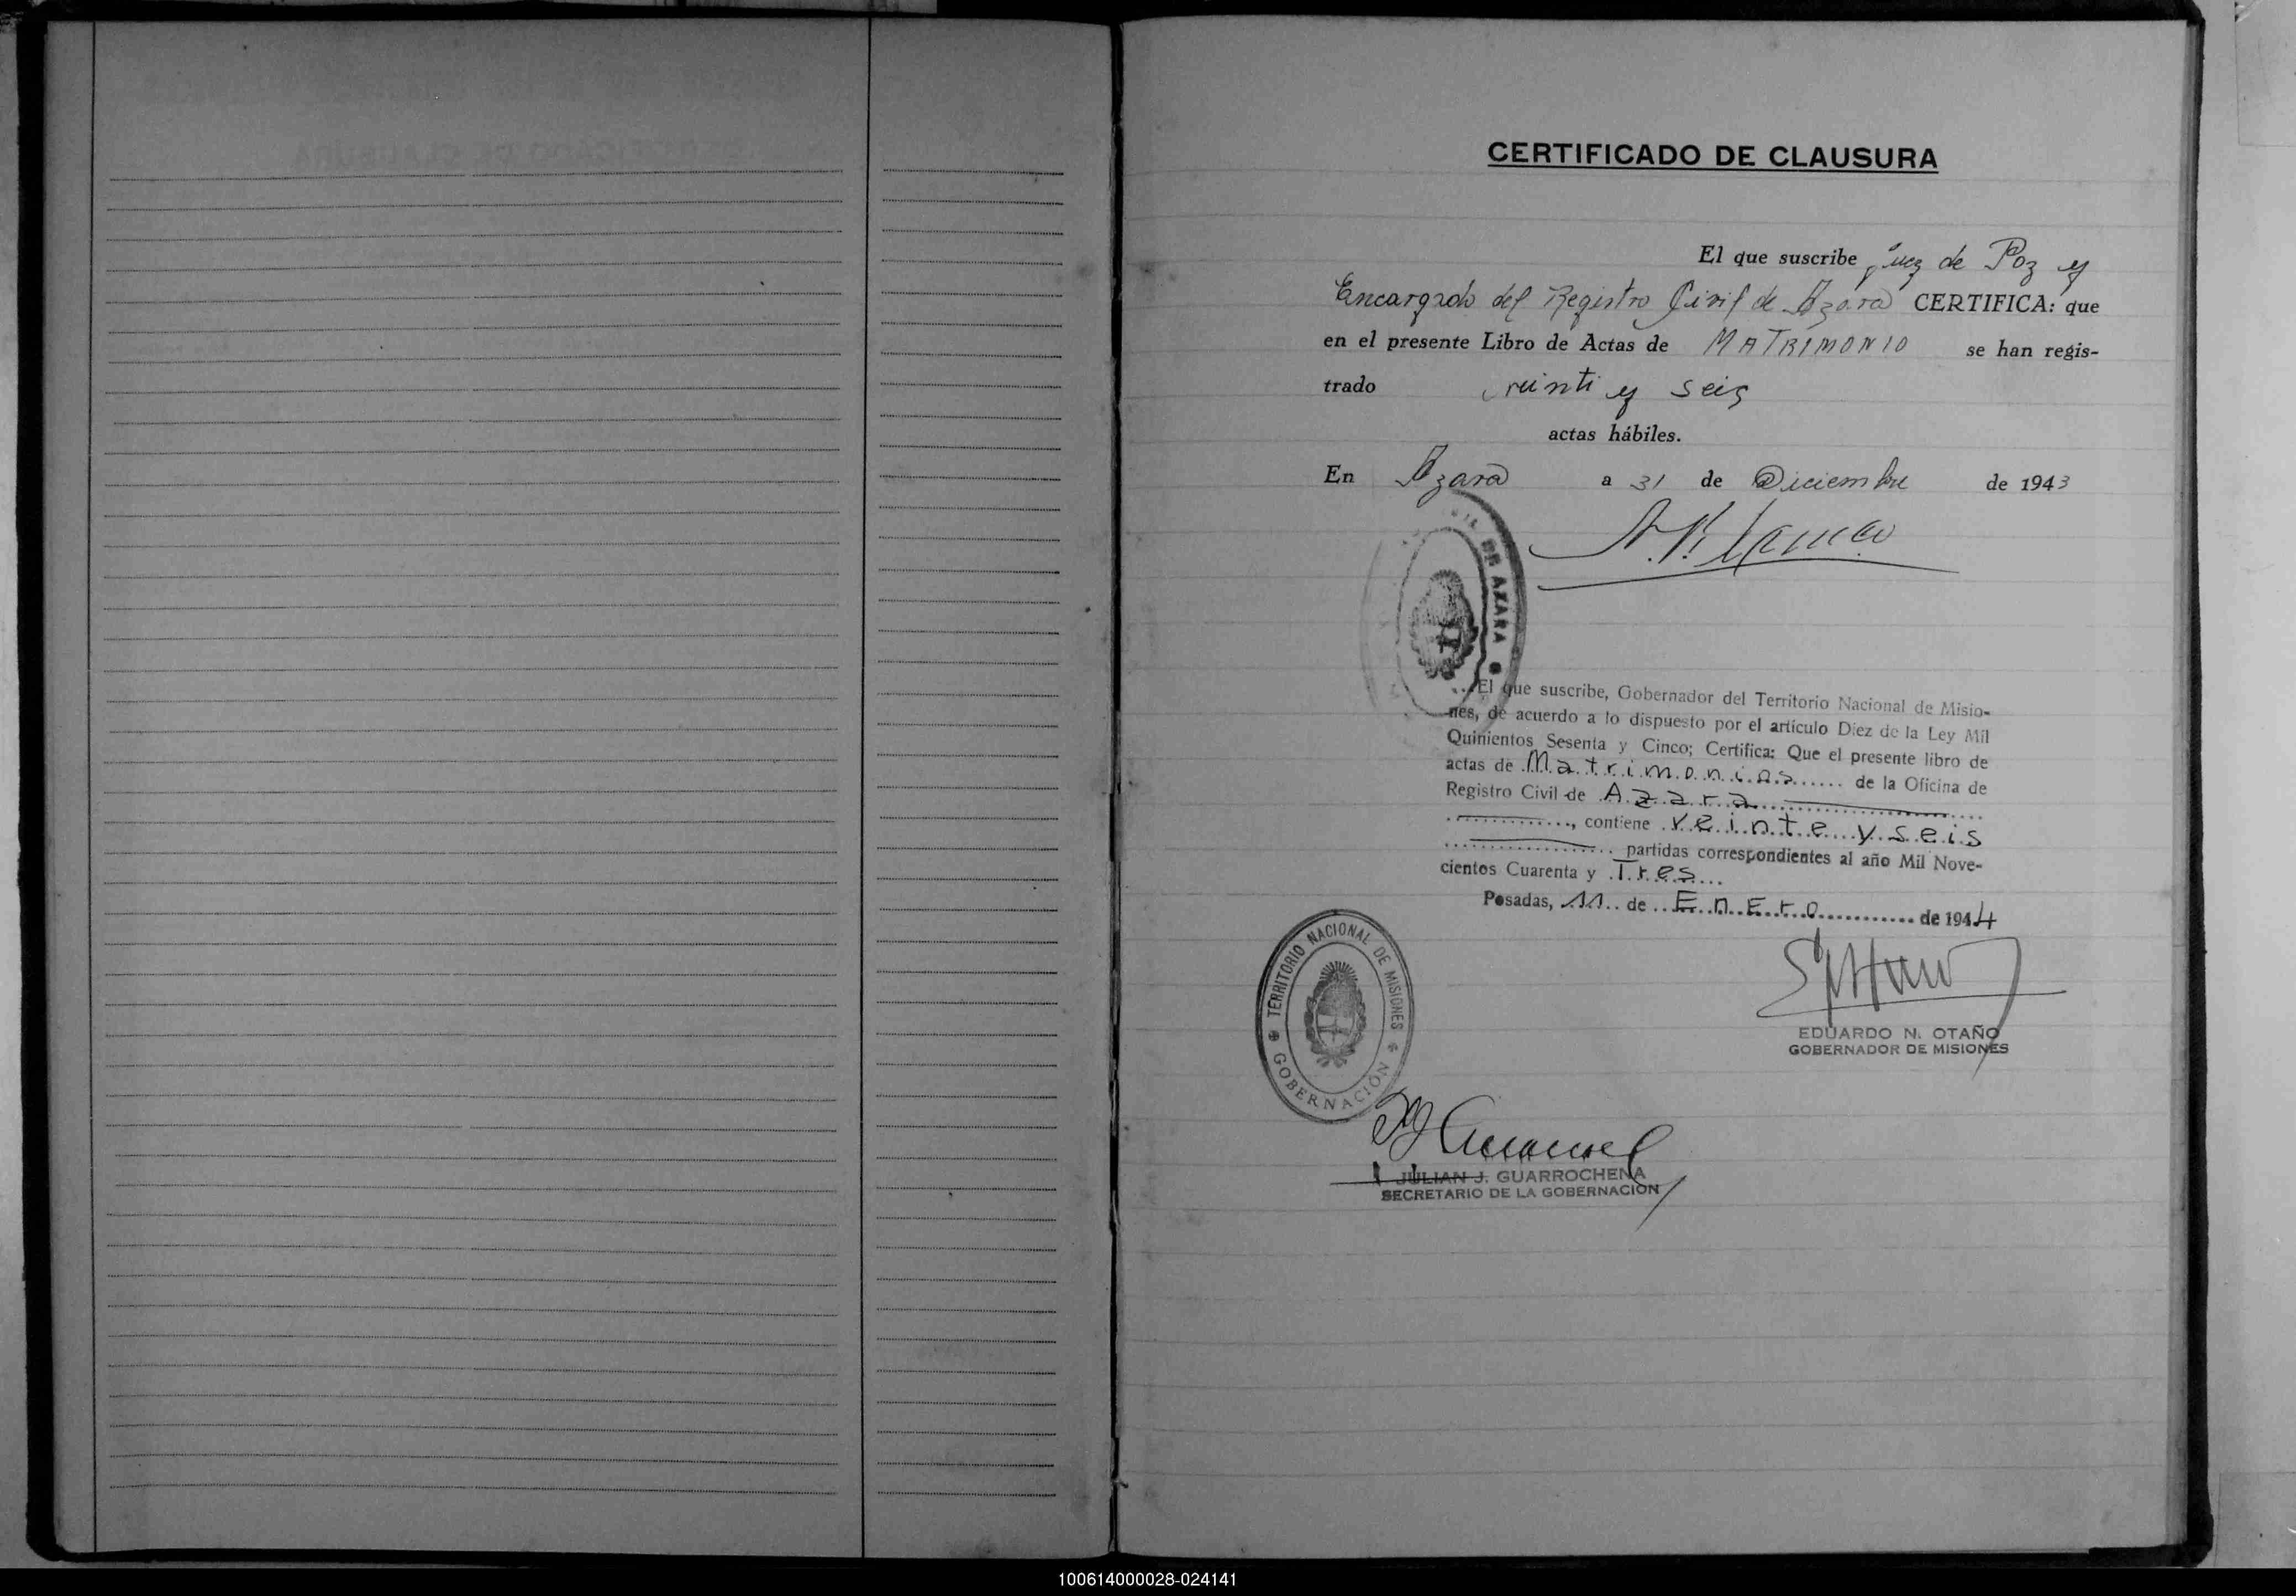 CERTIFICADO DE CLAUSURA
El que suscribe Juez de Paz y
Encargado del Registro Civil de Azara CERTIFICA: que
en el presente Libro de Actas de MATRIMONIO se han regis-
trado veinti y seis
actas hábiles.
En Azara a 31 de Diciembre de 1943
DE AZARA
El que suscribe, Gobernador del Territorio Nacional de Misio-
nes, de acuerdo a lo dispuesto por el artículo Diez de la Ley Mil
Quinientos Sesenta y Cinco; Certifica: Que el presente libro de
actas de Matrimonios de la Oficina de
Registro Civil de Azara
, contiene veinte y seis
partidas correspondientes al año Mil Nove-
cientos Cuarenta y Tres
Posadas, 11 de Enero de 1944
TERRITORIO NACIONAL DE MISIONES
GOBERNACIÓN
EDUARDO N. OTAÑO
GOBERNADOR DE MISIONES
JULIAN J. GUARROCHENA
SECRETARIO DE LA GOBERNACION
100614000028-024141